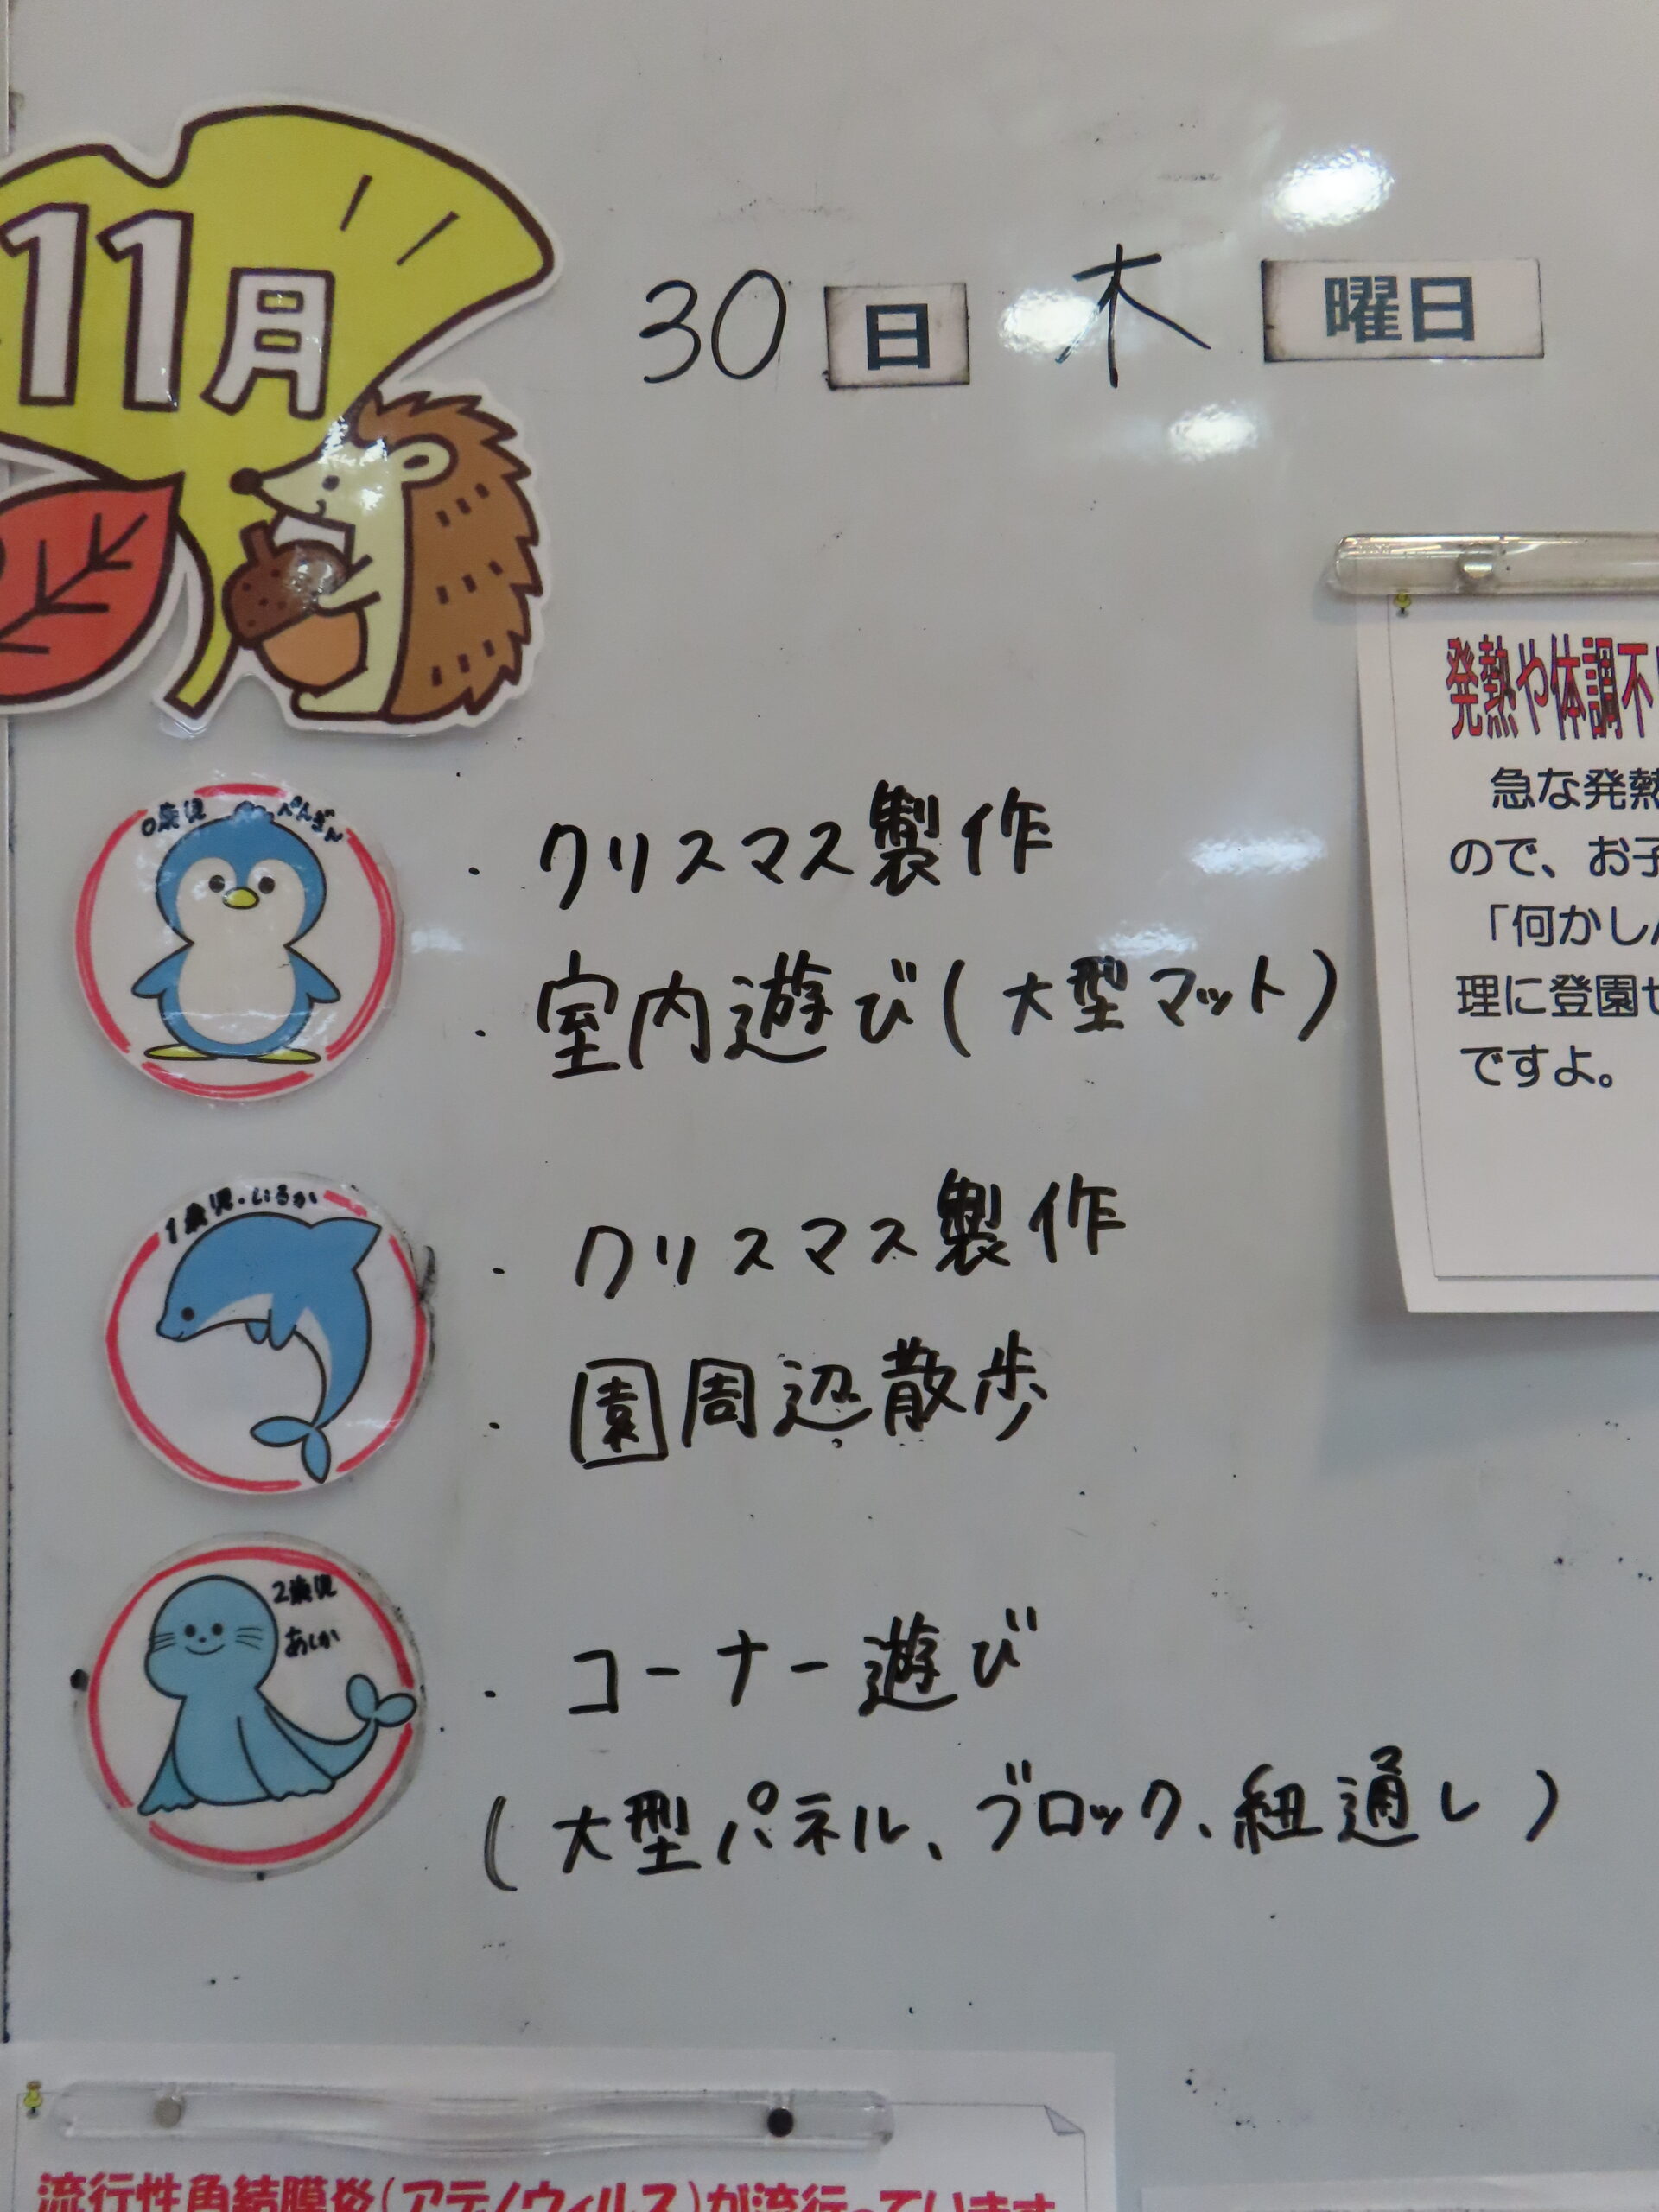 11月 30日 木曜日
0歳児 ぺんぎん
・クリスマス製作
・室内遊び(大型マット)
1歳児・いるか
・クリスマス製作
・園周辺散歩
2歳児
あしか
・コーナー遊び
(大型パネル、ブロック、紐通し)
発熱や体調不
急な発熱
ので、お子
「何かし
理に登園せ
ですよ。
流行性角結膜炎(アデノウィルス)が流行っています